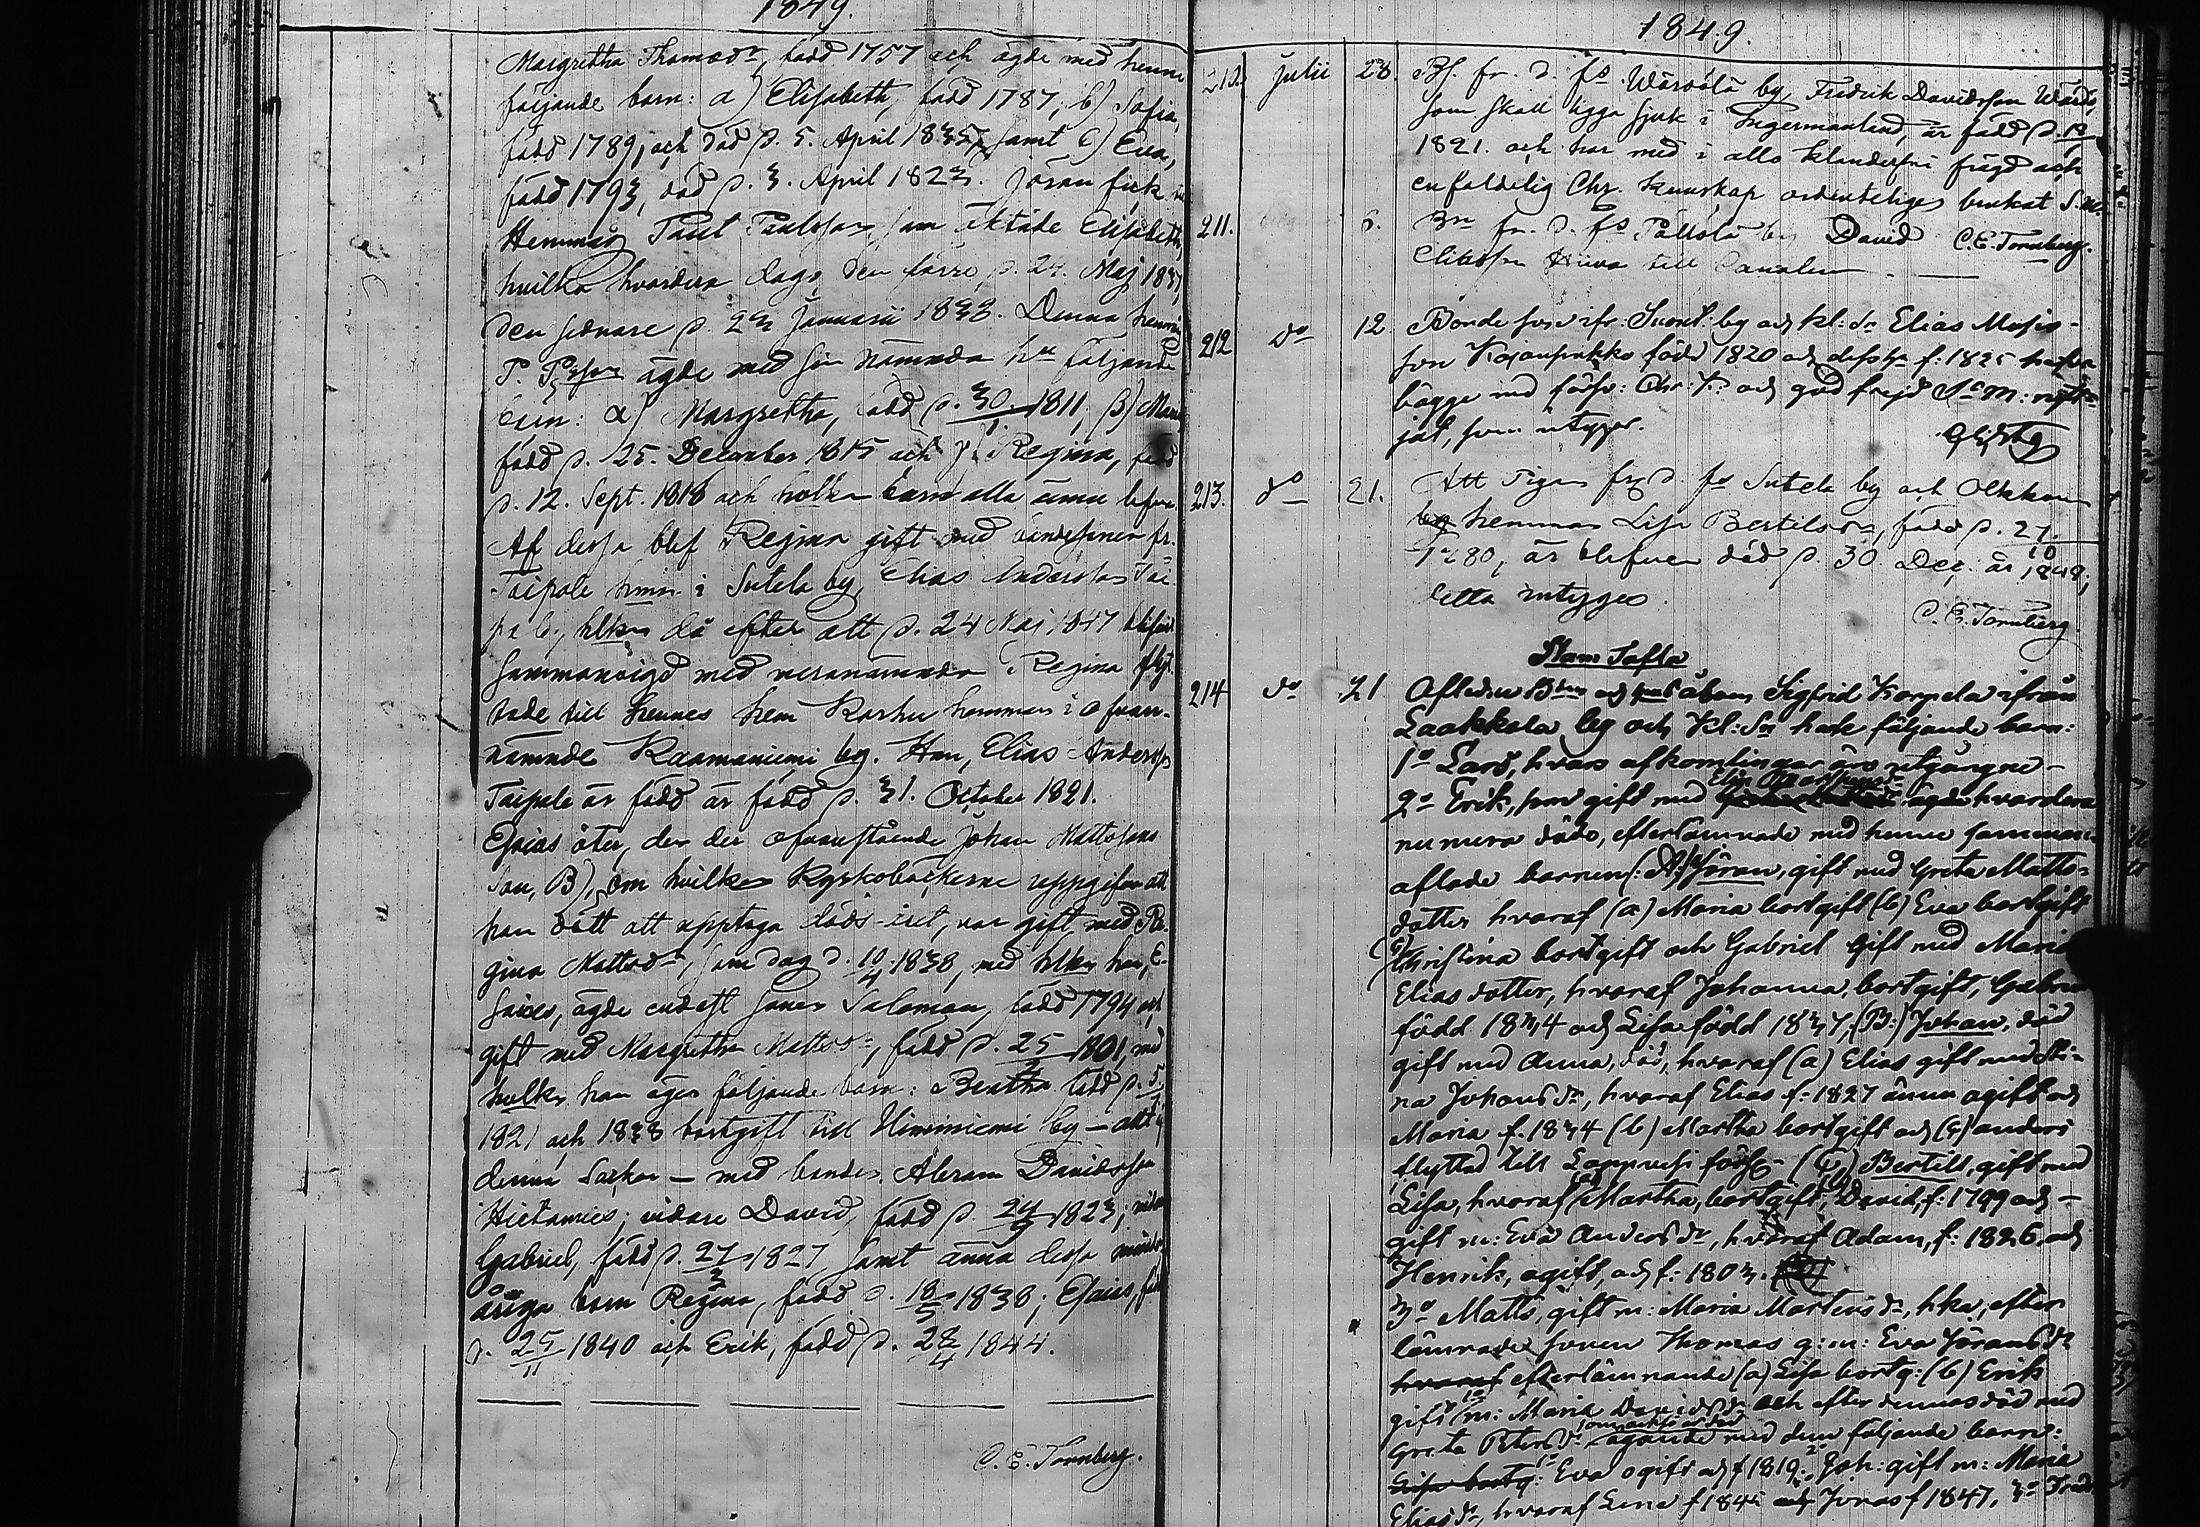 1849.
Margretha Thomasdr, född 1757 och ägde med henne
följande barn: a) Elisabeth, född 1787; b) Sofia,
född 1789, och död d. 5. April 1835, samt c) Eva,
född 1793, död d. 3. April 1823. Jöran fick
Hemmåg Paul Paulsson som äktade Elisabeth,
hvilka hvardera dogo, den förre, d. 24. Maj 1837,
den sednare d. 23 Januarii 1838. Denna hemmåg
P. ägde med sin nämnda följande
barn: α) Margretha, född d. 30. 1811, β) Maria
född d. 25. December 1815 och γ) Regina, född
d. 12. Sept. 1818 och hvilka barn alla ännu lefva
Af dessa blef Regina gift med bondesonen fr.
Taipale hmn i Sutela by, Elias Andersson Tai-
pale, hlken då efter att d. 24 Maj 1847 blifvit
sammanvigd med mernämnda Regina flyt-
tade till hennes hem Karhu hemman i ofvan-
nämnde Raamaniemi by. Han, Elias Anderss
Taipale är född är född d. 31. October 1821.
Esaias åter, den der ofvanstående Johan Mattssons
Son, B), om hvilken Kyrkoböckerne uppgifva att
han dött att upptaga döds-året, var gift med Re-
gina Mattsdr, som dog d. 10/4 1838, med hlken han, E-
saias, ägde endast sonen Salomon, född 1794 och
gift med Margretha Mattsdr, född d. 25 1801, med
hvilken han äger följande barn: Beatha född d. 5.
1821 och 1838 bortgift till Himiniemi by — allt i
denna Socken — med bonden Abram Davidsson
Hietamies; vidare David, född d. 24/9 1823; vidare
Gabriel, född d. 27/3 1827 samt ännu dessa minder-
åriga barn Regina, född d. 18/5 1838; Esaias, född
d. 25/11 1840 och Erik, född d. 28/4 1844.
C. E. Tornberg.
1849.
210. Julii 28. Bs. fr. d. fs. Wärölä by, Fredrik Davidsson
som skall ligga sjuk i Ingermanland, är född d.
1821. och har med i allo klanderfri frägd och
enfaldelig Chr. kunskap ordenteligen brukat S. M.
C. E. Tornberg.
211. 6. Bn fr. d. fs by David
Eliasson till Canalen
212 do 12. Bonde ifr: Suont: by och kl: Sn Elias Mosis-
son Kojonpakka född 1820 och dess f: 1825 hafva
bägge med förfr: Chr: K: och god frejd Sa M: nytt-
jat, som intygar.
213. do 21. Att Pigan fr. d. fs Sutela by och Olkkonen
hemman Lisa Bertilsdr, född d. 27./10
1780, är blefven död d. 30. Dec. år 1848,
detta intygges.
C. E. Tornberg
Stam Tafla
214 do 21 Afledne och åboen Sigfrid Korpela ifrån
Laakkola by och Kl: Sn hade följande barn:
1o Lars, hvars afkomlingar äro utgångne —
2o Erik, som gift med Elin hvardera
numera döde, efterlämnade med henne samman-
aflade barnen: (A:) Jöran, gift med Greta Matts-
dotter hvaraf (a) Maria bortgift (b) Eva bortgift
(c) Christina bortgift och Gabriel gift med Maria
Elias dotter, hvaraf Johanna, bortgift, Gabriel
född 1834 och Lisa född 1837, (B:) Johan, död
gift med Anna, död, hvaraf (a) Elias gift med Sti-
na Johansdr, hvaraf Elias f: 1827 ännu ogift och
Maria f. 1834 (b) Martha bortgift och (c) Anders
flyttad till Lappvesi förs: (C) Bertill, gift med
Lisa, hvaraf Martha, bortgift, David, f: 1799 och —
gift m: Eva Andersdr, hvaraf Adam, f: 1826, och
Henrik, ogift, och f: 1803.
3o Matts, gift m: Maria Mårtensdr, hka; efter
lämnade sonen Thomas g: m: Eva Jöransdr
hvaraf efterlämnande (a) Lisa bortg: (b) Erik
gift 1o m: Maria Davidsdr och efter dennes död med
Greta Petersdr ägande med dem följande barn:
Lisa bortg: Eva ogift och f 1819. 2o Joh: gift m: Maria
Eliasdr, hvaraf Lena f 1844 och Jonas f 1847, 3o